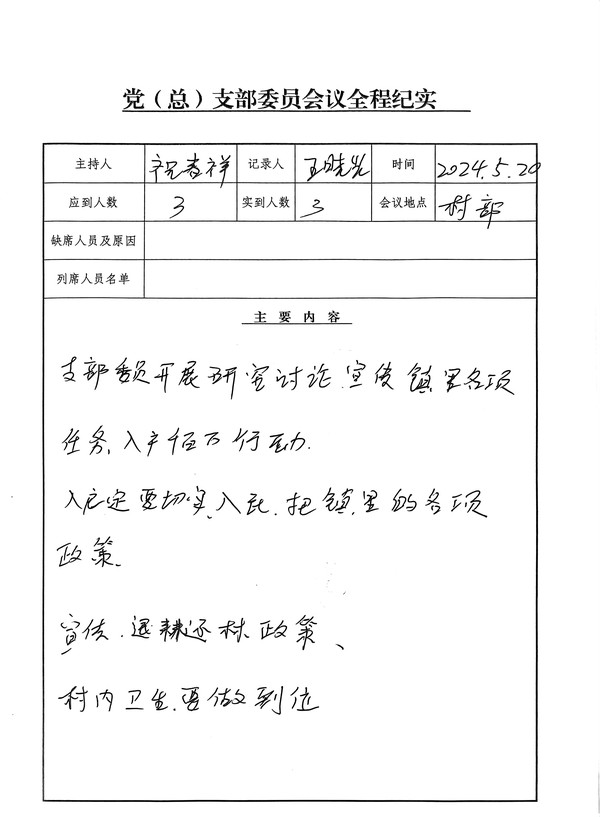 党（总）支部委员会议全程纪实
主持人 祝春祥 记录人 王晓光 时间 2024.5.20
应到人数 3 实到人数 3 会议地点 村部
缺席人员及原因
列席人员名单
主要内容
支部委员开展研究讨论.宣传镇里各项
任务.入户百万行动.
入户定要切实.入民.把镇里的各项
政策.
宣传.退耕还林政策、
村内卫生.要做到位